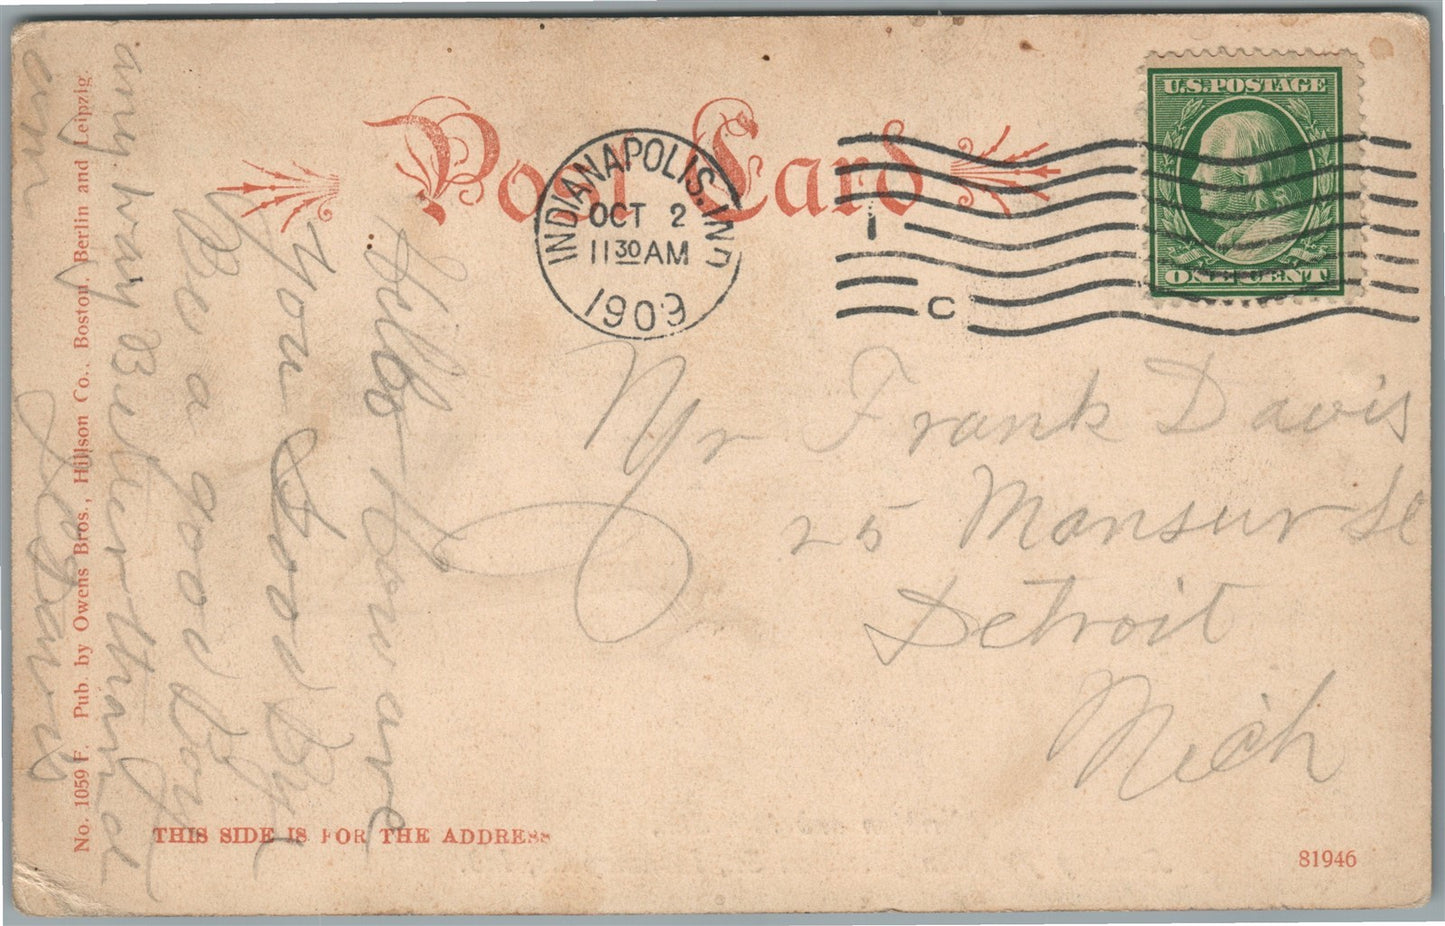 Post Card
INDIANAPOLIS, IND
OCT 2
11 30 AM
1909
1
C
U.S. POSTAGE
ONE CENT
Mr Frank Davis
25 Mansur St
Detroit
Mich
Hello How are
you Good By
Be a good Boy
any way Better than I
Davis
No. 1059 F. Pub. by Owens Bros., Hillson Co., Boston, Berlin and Leipzig
THIS SIDE IS FOR THE ADDRESS
81946